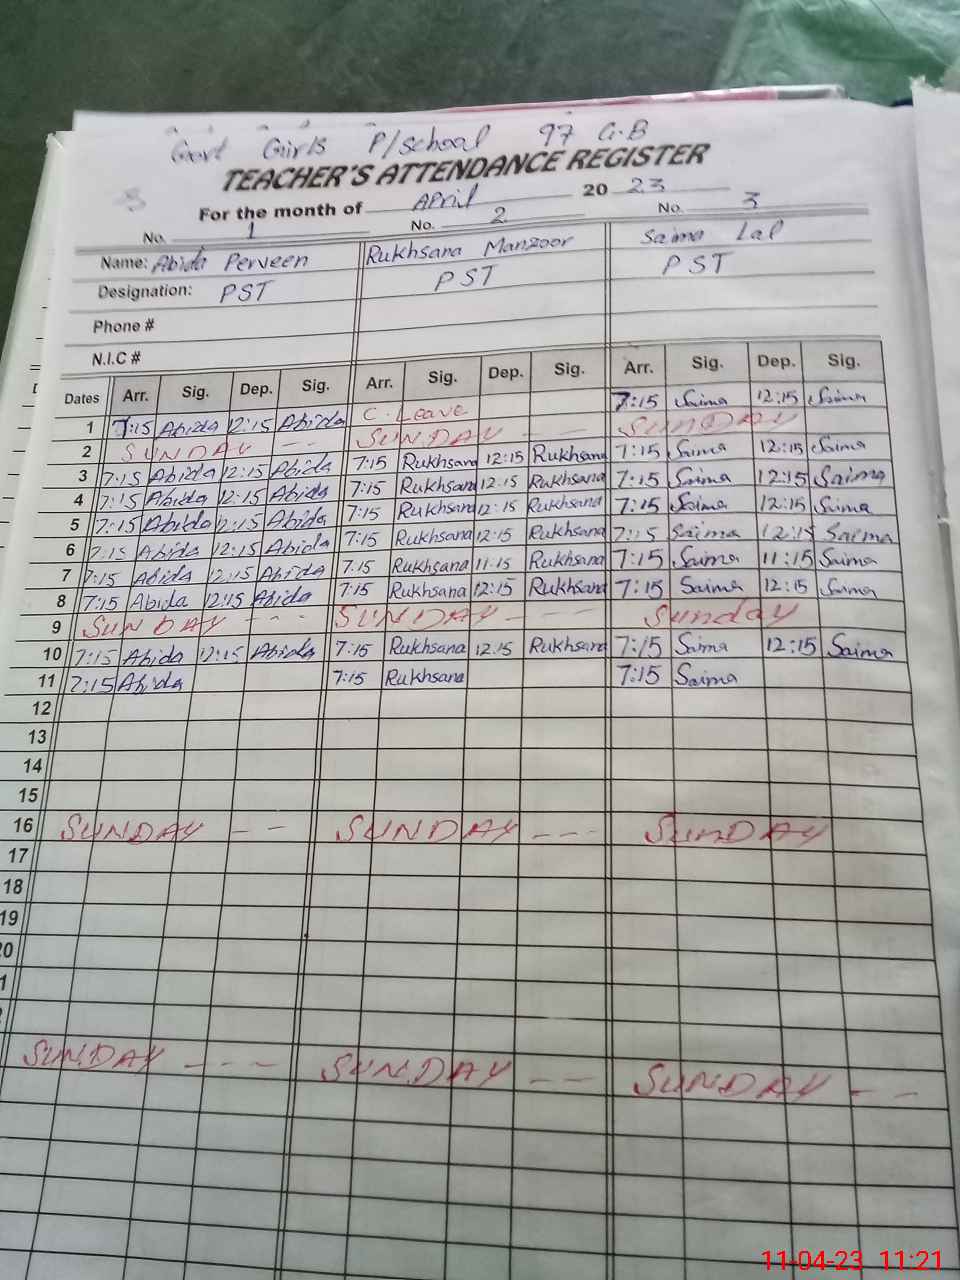 Govt Girls P/School 97 G.B
TEACHER'S ATTENDANCE REGISTER
For the month of April 20 23
No. 1 No. 2 No. 3
Name: Abida Perveen Rukhsana Manzoor Saima Lal
Designation: PST PST PST
Phone #
N.I.C #
Dates Arr. Sig. Dep. Sig. Arr. Sig. Dep. Sig. Arr. Sig. Dep. Sig.
1 7:15 Abida 12:15 Abida C. Leave 7:15 Saima 12:15 Saima
2 SUNDAY - - - SUNDAY - - - SUNDAY
3 7:15 Abida 12:15 Abida 7:15 Rukhsana 12:15 Rukhsana 7:15 Saima 12:15 Saima
4 7:15 Abida 12:15 Abida 7:15 Rukhsana 12:15 Rukhsana 7:15 Saima 12:15 Saima
5 7:15 Abida 12:15 Abida 7:15 Rukhsana 12:15 Rukhsana 7:15 Saima 12:15 Saima
6 7:15 Abida 12:15 Abida 7:15 Rukhsana 12:15 Rukhsana 7:15 Saima 12:15 Saima
7 7:15 Abida 12:15 Abida 7:15 Rukhsana 11:15 Rukhsana 7:15 Saima 11:15 Saima
8 7:15 Abida 12:15 Abida 7:15 Rukhsana 12:15 Rukhsana 7:15 Saima 12:15 Saima
9 SUNDAY - - - SUNDAY - - - Sunday
10 7:15 Abida 12:15 Abida 7:15 Rukhsana 12:15 Rukhsana 7:15 Saima 12:15 Saima
11 7:15 Abida 7:15 Rukhsana 7:15 Saima
12
13
14
15
16 SUNDAY - - SUNDAY - - - SUNDAY
17
18
19
20
1
SUNDAY - - - SUNDAY - - SUNDAY - -
11-04-23 11:21